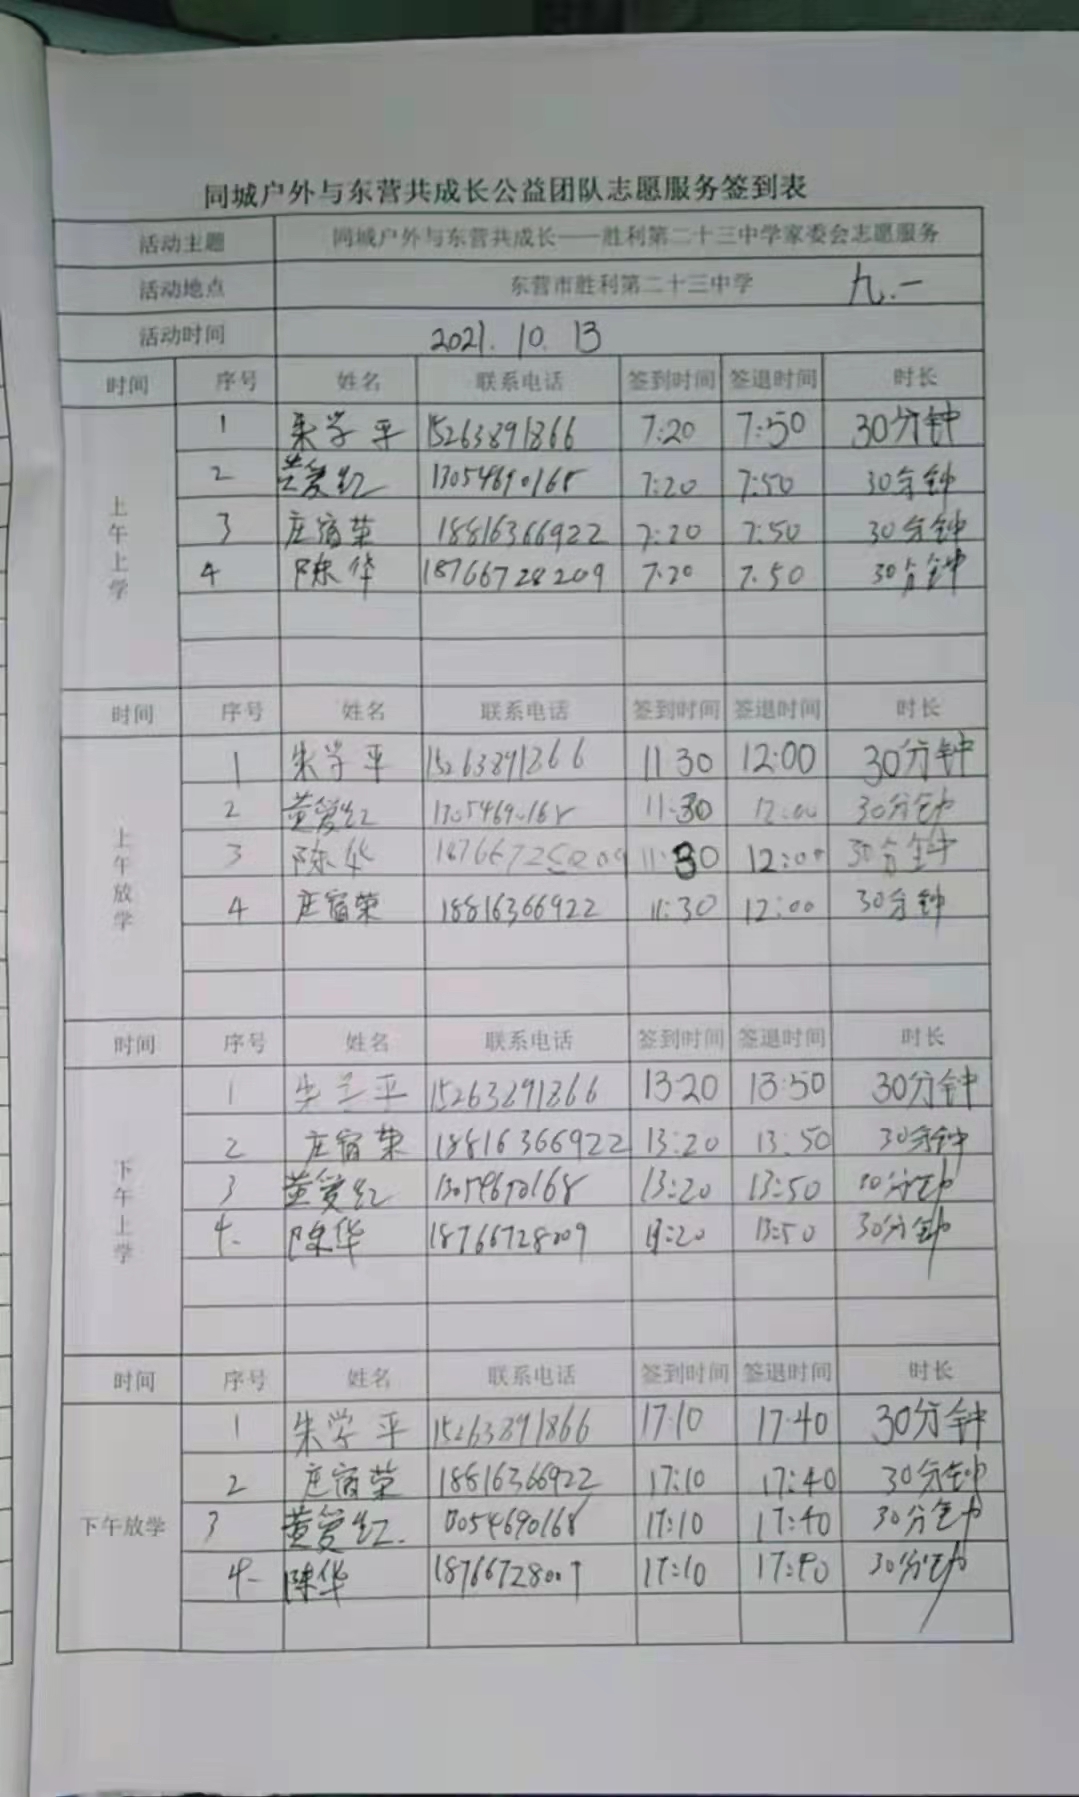 同城户外与东营共成长公益团队志愿服务签到表
活动主题 同城户外与东营共成长——胜利第二十三中学家委会志愿服务
活动地点 东营市胜利第二十三中学 九.一
活动时间 2021.10.13
时间 序号 姓名 联系电话 签到时间 签退时间 时长
上午上学
1 朱学平 15263891866 7:20 7:50 30分钟
2 黄爱红 13054690168 7:20 7:50 30分钟
3 庄宿荣 18816366922 7:20 7:50 30分钟
4 陈华 18766728209 7:20 7:50 30分钟
时间 序号 姓名 联系电话 签到时间 签退时间 时长
上午放学
1 朱学平 15263891866 11:30 12:00 30分钟
2 黄爱红 11:30 12:00 30分钟
3 陈华 11:30 12:00 30分钟
4 庄宿荣 18816366922 11:30 12:00 30分钟
时间 序号 姓名 联系电话 签到时间 签退时间 时长
下午上学
1 朱学平 15263891866 13:20 13:50 30分钟
2 庄宿荣 18816366922 13:20 13:50 30分钟
3 黄爱红 13054690168 13:20 13:50 30分钟
4 陈华 18766728009 13:20 13:50 30分钟
时间 序号 姓名 联系电话 签到时间 签退时间 时长
下午放学
1 朱学平 15263891866 17:10 17:40 30分钟
2 庄宿荣 18816366922 17:10 17:40 30分钟
3 黄爱红. 13054690168 17:10 17:40 30分钟
4 陈华 18766728009 17:10 17:40 30分钟